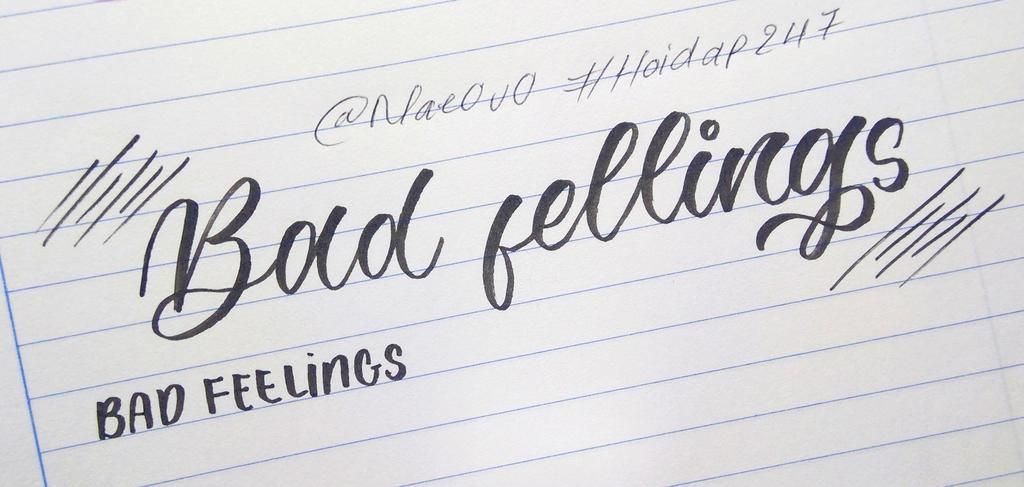 @Mae0v0 #Hoidap247
Bad fellings
BAD FEELiNGS